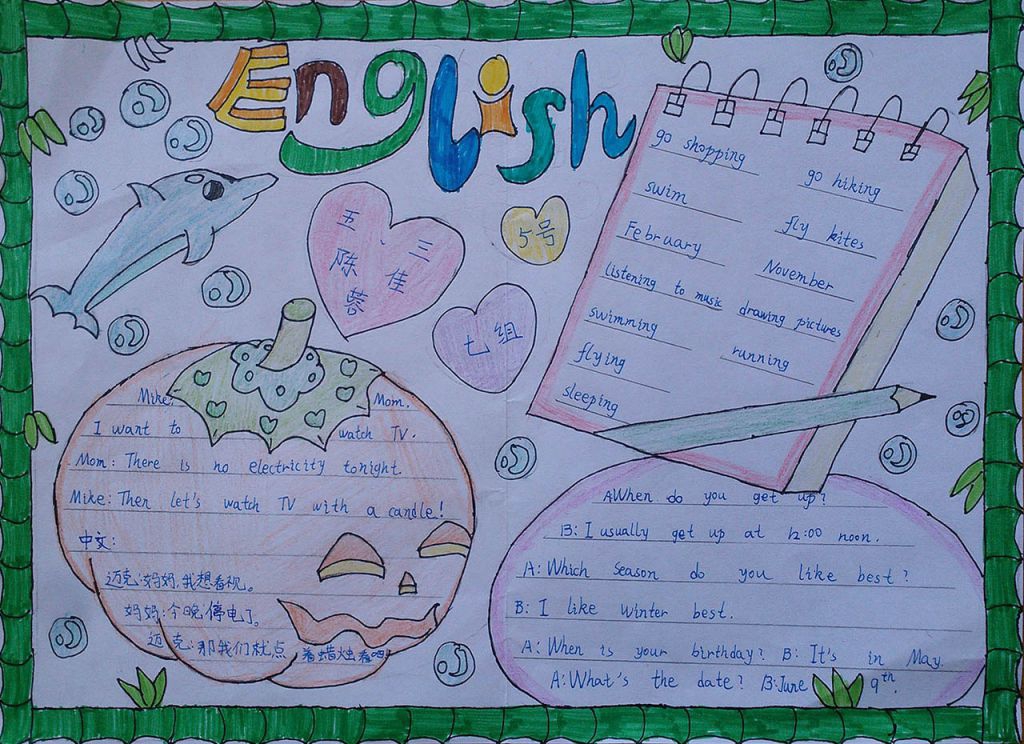 English
五、三
陈佳
蓉
5号
七组
go shopping
go hiking
swim
fly kites
February
November
listening to music
drawing pictures
swimming
running
flying
sleeping
Mike: Mom.
I want to watch TV.
Mom: There is no electricity tonight.
Mike: Then let's watch TV with a candle!
中文:
迈克:妈妈,我想看视。
妈妈:今晚停电了。
迈克:那我们就点着蜡烛看吧!
A When do you get up?
B: I usually get up at 12:00 noon.
A: Which season do you like best?
B: I like winter best.
A: When is your birthday? B: It's in May.
A: What's the date? B: June 9th.